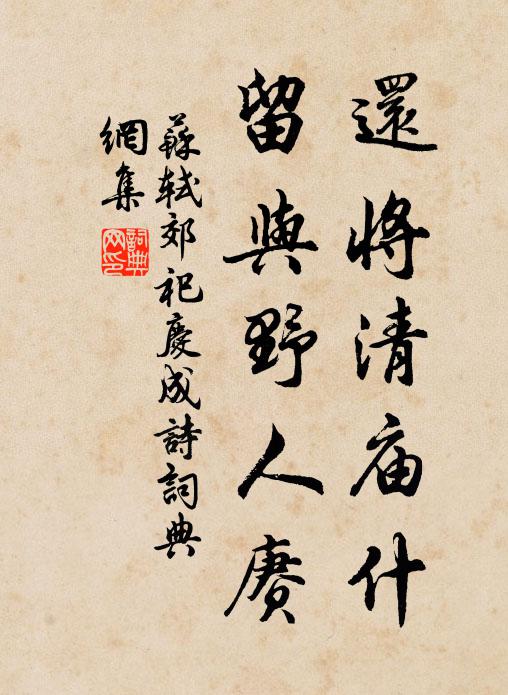 還將清庙什
留與野人賡
蘇軾郊祀慶成詩詞典
網集
詞典
网印